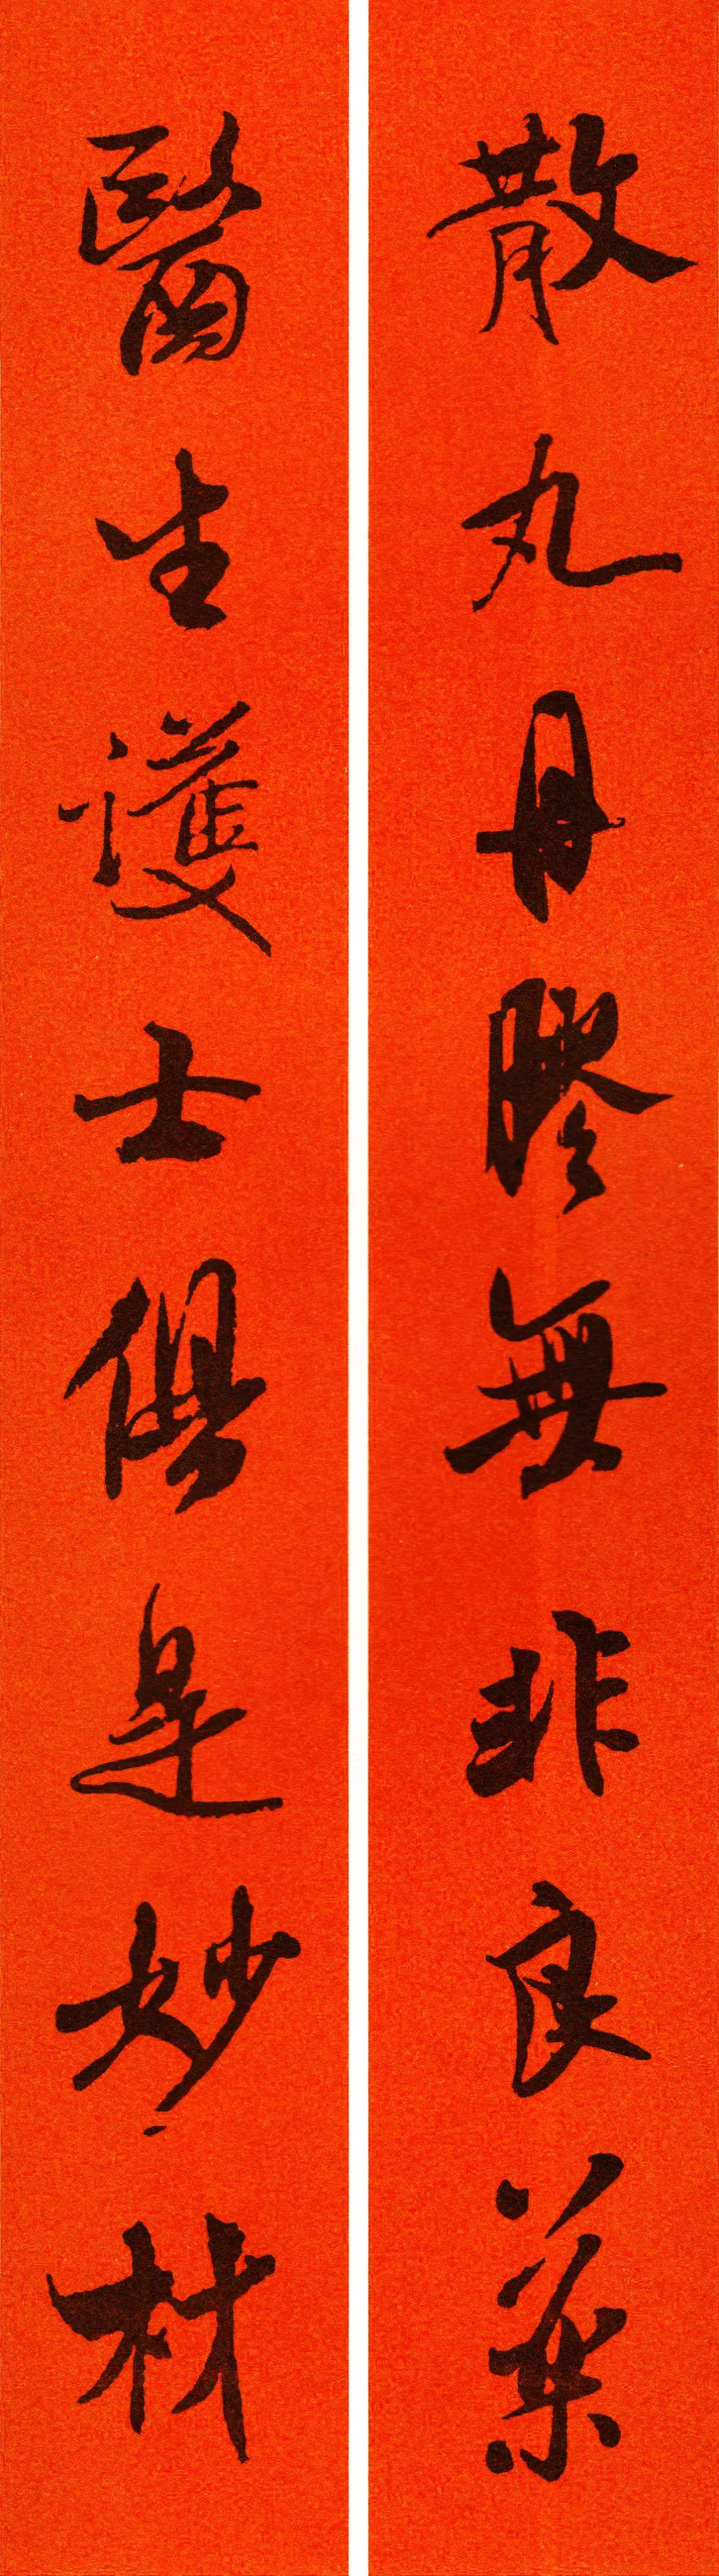 散丸丹膠無非良藥
醫生護士俱是妙材